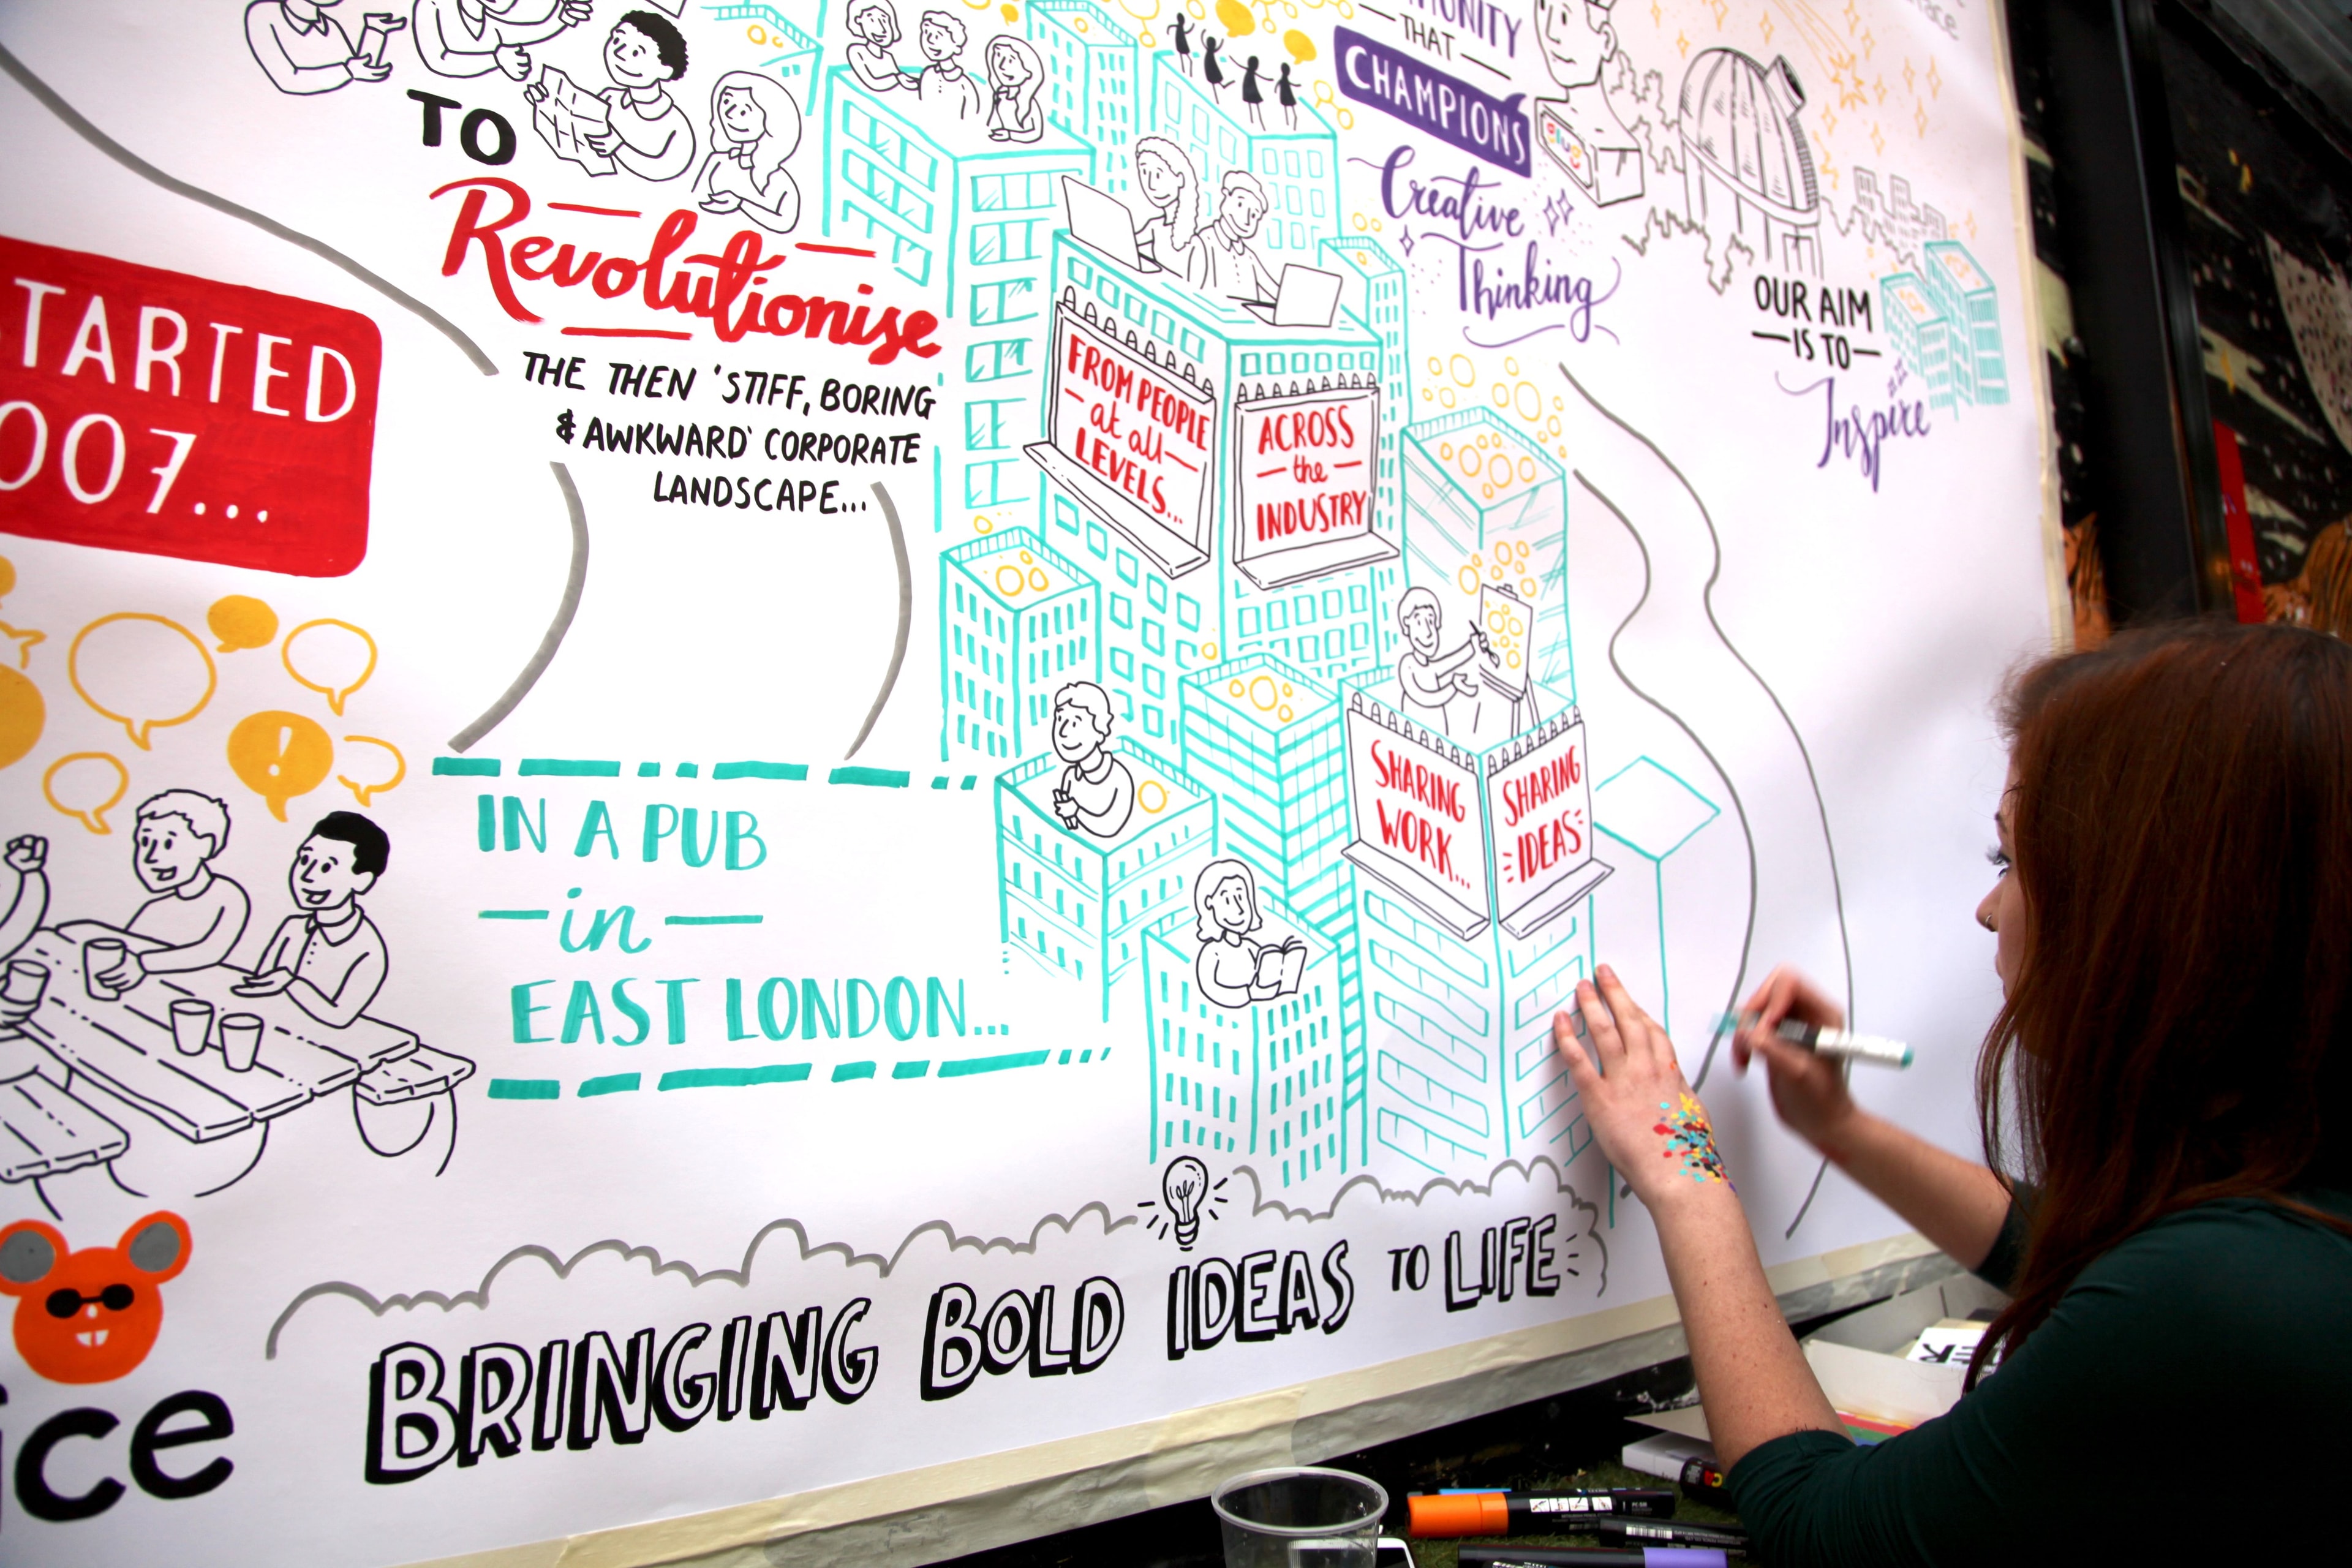 TARTED
007...
TO
Revolutionise
THE THEN 'STIFF, BORING
& AWKWARD' CORPORATE
LANDSCAPE...
IN A PUB
in
EAST LONDON...
FROM PEOPLE
at all
LEVELS...
ACROSS
the
INDUSTRY
SHARING
WORK...
SHARING
IDEAS
THAT
CHAMPIONS
Creative
Thinking
glug
OUR AIM
IS TO
Inspire
!
ice
BRINGING BOLD IDEAS TO LIFE